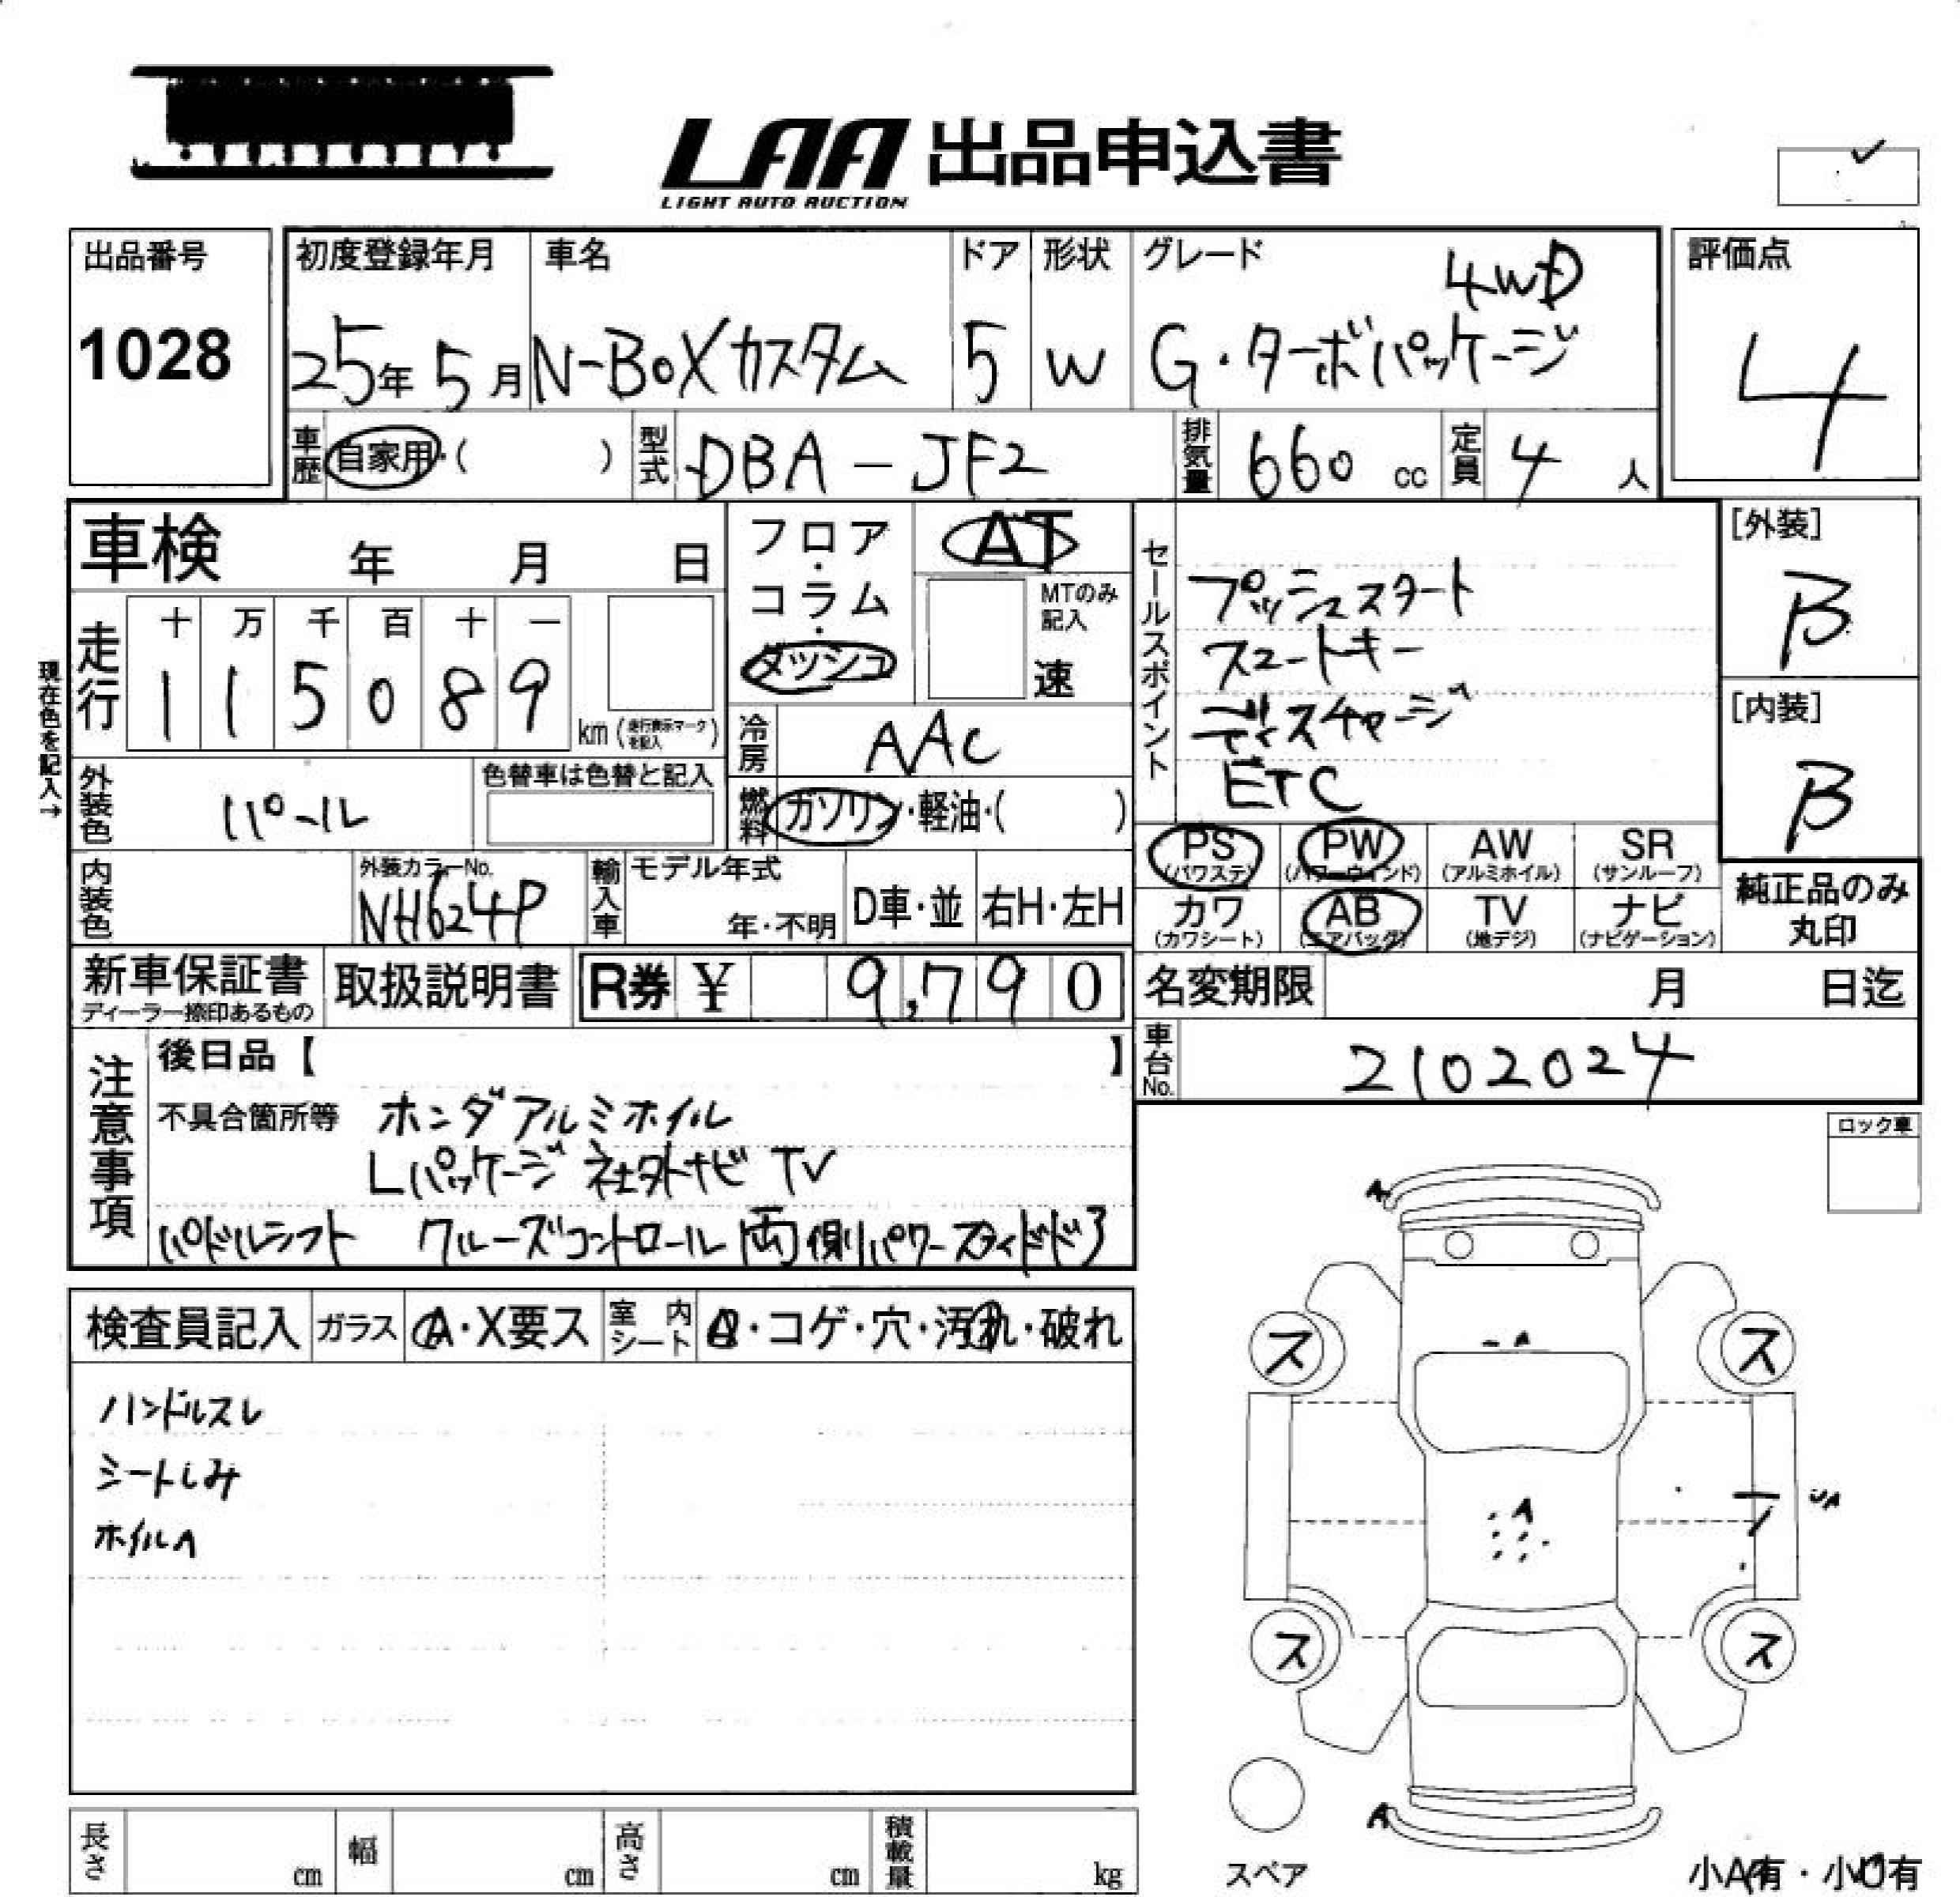 LAA 出品申込書
LIGHT AUTO AUCTION
出品番号
1028
初度登録年月
25年 5月
車名
N-BOXカスタム
ドア
5
形状
W
グレード
4WD
G・ターボパッケージ
評価点
4
車歴 自家用・( )
型式 DBA-JF2
排気量 660 cc
定員 4 人
車検 年 月 日
フロア・コラム・ダッシュ
AT
MTのみ記入
速
走行 十 万 千 百 十 一
1 1 5 0 8 9 km (走行表示マークを記入)
現在色を記入→
冷房 AAC
燃料 ガソリン・軽油・( )
外装色 パール
色替車は色替と記入
内装色
外装カラーNo.
NH624P
輸入車 モデル年式
年・不明
D車・並
右H・左H
セールスポイント
プッシュスタート
スマートキー
ディスチャージ
ETC
[外装]
B
[内装]
B
PS (パワステ) PW (パワーウィンド) AW (アルミホイル) SR (サンルーフ)
カワ (カワシート) AB (エアバッグ) TV (地デジ) ナビ (ナビゲーション)
純正品のみ丸印
新車保証書
ディーラー捺印あるもの
取扱説明書
R券 ¥ 9,790
名変期限 月 日迄
車台No. 2102024
注意事項
後日品【 】
不具合箇所等 ホンダアルミホイル
Lパッケージ 社外ナビ TV
パドルシフト クルーズコントロール 両側パワースライドドア
ロック車
検査員記入
ガラス A・X要ス
室内シート ・コゲ・穴・汚れ・破れ
ハンドルスレ
シートしみ
ホイルA
A
A
ス ス
A
UA
ス ス
A
スペア
小A有・小U有
長さ cm
幅 cm
高さ cm
積載量 kg